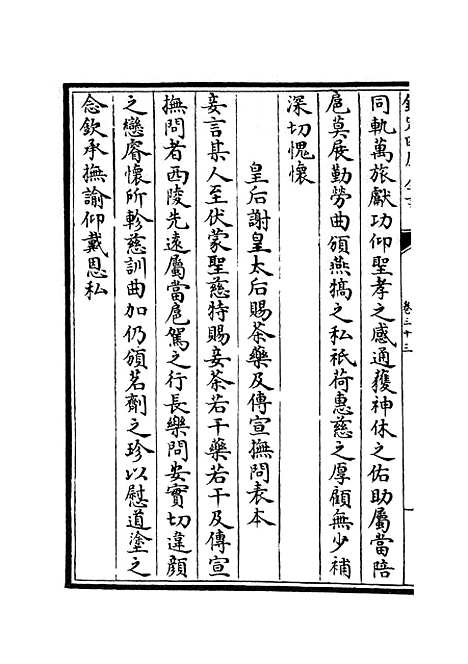 卷三十三
同軌萬旅獻功仰聖孝之感通獲神休之佑助屬當陪
扈莫展勤勞曲頒燕犒之私祇荷惠慈之厚顧無少補
深切愧懷
皇后謝皇太后賜茶藥及傳宣撫問表本
妾言某人至伏蒙聖慈特賜妾茶若干藥若干及傳宣
撫問者西陵先遠屬當扈駕之行長樂問安實切違顔
之戀睿懷所軫慈訓曲加仍頒茗劑之珍以慰道塗之
念欽承撫諭仰戴恩私